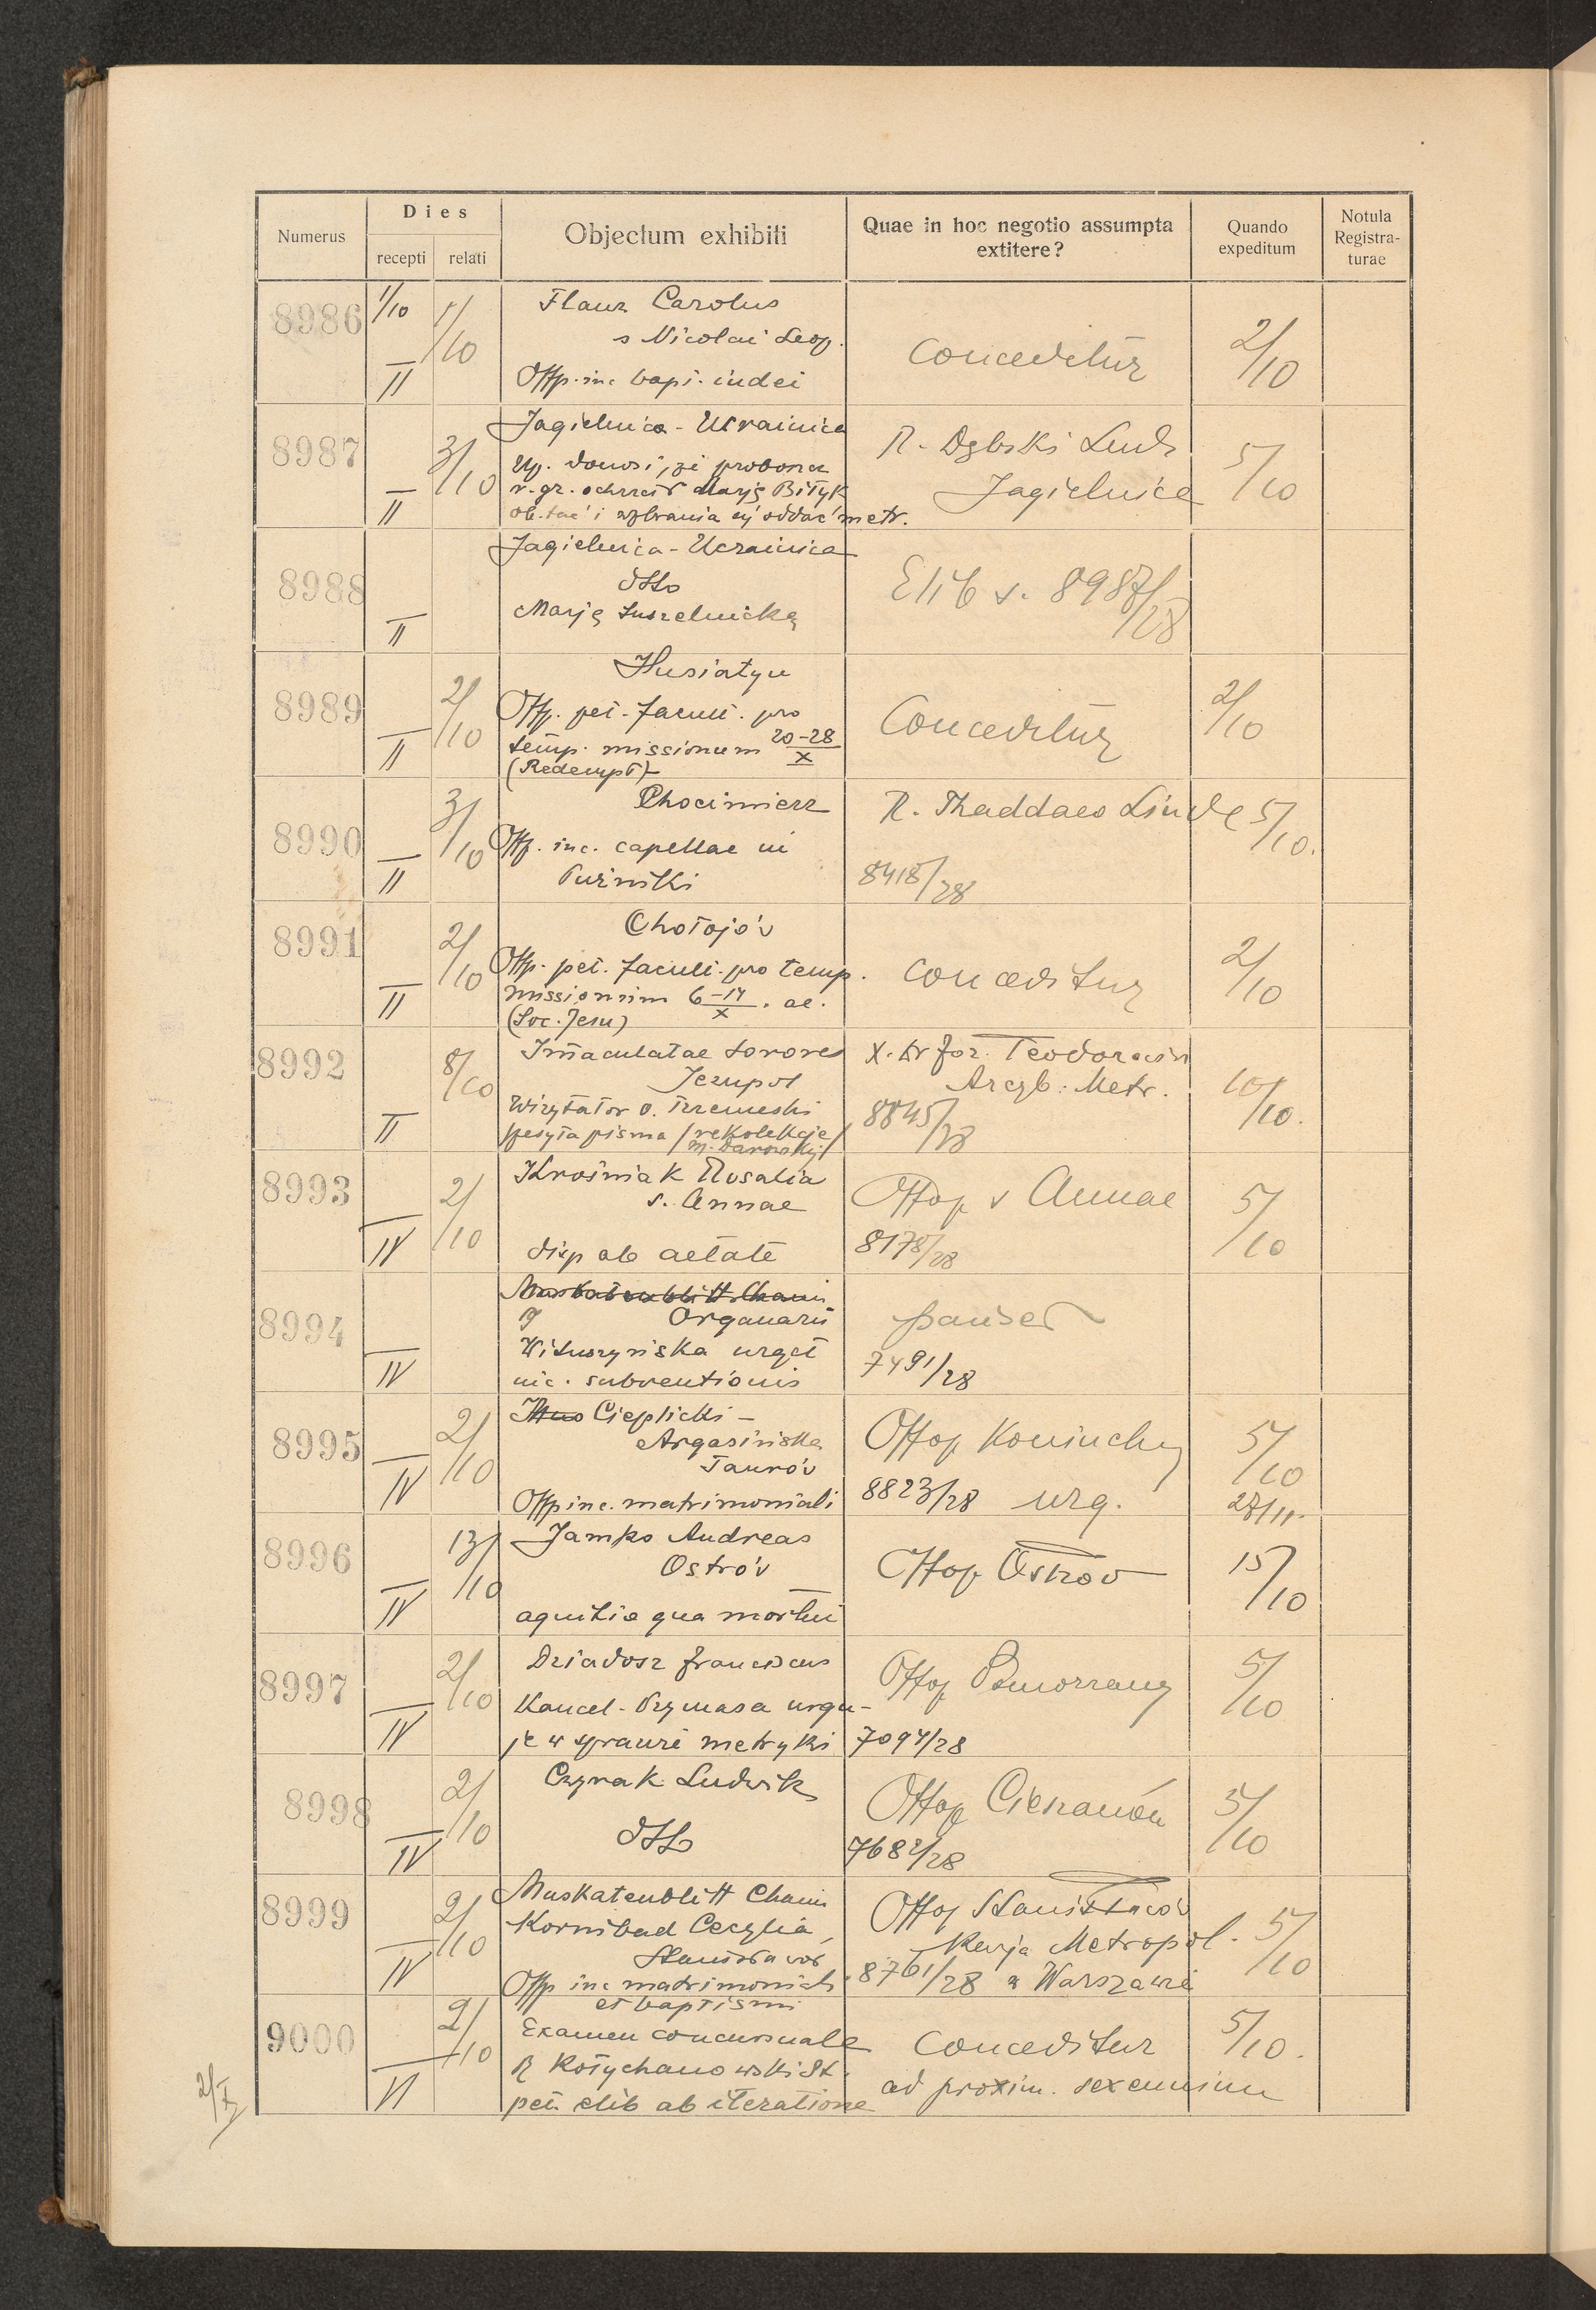 Numerus
Dies
recepti
relati
Objectum exhibiti
Quae in hoc negotio assumpta
extitere?
Quando
expeditum
Notula
Registra-
turae
8986
1/10
1/10
II
Carolus
s Nicolai Leop.
Offp. inc bapt. iudei
Conceditur
2/10
8987
3/10
II
Jagielnica - Ukrainica
donosi, że
r. gr. Marję Biłyk
metr.
R. Dębski Ludv
Jagielnica
5/10
8988
II
Jagielnica - Ucrainica
dtto
Marję
v. 8987/28
8989
2/10
II
Husiatyn
Offp. pet. facult. pro
temp. missionum 20-28/X
(Redempt)
Conceditur
2/10
8990
3/10
II
Chocimierz
Offp. inc. capellae in
Puźniki
R. Thaddaeo Linde
8418/28
5/10.
8991
2/10
II
Chołojów
Offp. pet. facult. pro temp.
missionum 6-14/X . ac.
(Soc. Jesu)
Conceditur
2/10
8992
8/10
II
Immaculatae Sorores
Jezupol
Wizytator o. Trzemeski
pisma /rekolekcje/
X. Dr Józ. Teodorowicz
Arcyb. Metr.
8845/28
10/10.
8993
2/10
IV
Krośniak Rosalia
s. Annae
disp ab aetate
Offop s Annae
8178/28
5/10
8994
IV
Muskatenblitt Chaim
Organarii
Wituszyńska urget
inc. subventionis
7491/28
8995
2/10
IV
Cieplicki -
Argasińska
Taurów
Offp inc. matrimoniali
Offop Koniuchy
8823/28 urg.
5/10
28/11.
8996
13/10
IV
Jamko Andreas
Ostrów
agnitio qua mortui
Offop Ostrów
15/10
8997
2/10
IV
Dziadosz Franciscus
Kancel. Prymasa urgu-
je w sprawie metryki
Offop Pomorzany
7094/28
5/10
8998
2/10
IV
Czyrak Ludwik
dtto
Offop Cieszanów
7682/28
5/10
8999
2/10
IV
Muskatenblitt Chaim
Kornibad Cecylia,
Stanisławow
Offp inc matrimoniali
et baptismi
Offop Stanisławów
Kurja Metropol.
8761/28 w Warszawie
5/10
9000
2/10
VI
Examen concursuale
R Kołychanowski St.
pet. elib ab iteratione
Conceditur
ad proxim. sexennium
5/10.
2/X